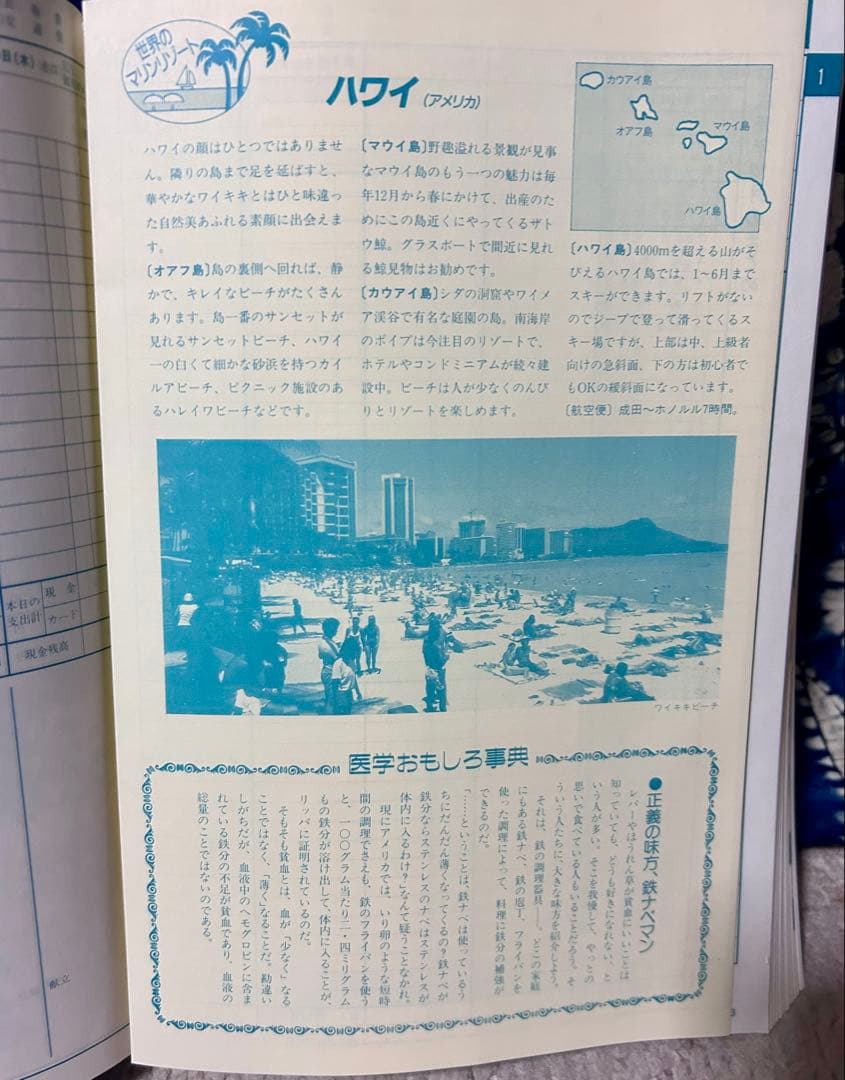 世界の
マリンリゾート
ハワイ(アメリカ)
ハワイの顔はひとつではありませ
ん。隣りの島まで足を延ばすと、
華やかなワイキキとはひと味違っ
た自然美あふれる素顔に出会えま
す。
〔オアフ島〕島の裏側へ回れば、静
かで、キレイなビーチがたくさん
あります。島一番のサンセットが
見れるサンセットビーチ、ハワイ
一の白くて細かな砂浜を持つカイ
ルアビーチ、ピクニック施設のあ
るハレイワビーチなどです。
〔マウイ島〕野趣溢れる景観が見事
なマウイ島のもう一つの魅力は毎
年12月から春にかけて、出産のた
めにこの島近くにやってくるザト
ウ鯨。グラスボートで間近に見れ
る鯨見物はお勧めです。
〔カウアイ島〕シダの洞窟やワイメ
ア渓谷で有名な庭園の島。南海岸
のポイプは今注目のリゾートで、
ホテルやコンドミニアムが続々建
設中。ビーチは人が少なくのんび
りとリゾートを楽しめます。
カウアイ島
オアフ島
マウイ島
ハワイ島
〔ハワイ島〕4000mを超える山がそ
びえるハワイ島では、1~6月まで
スキーができます。リフトがない
のでジープで登って滑ってくるス
キー場ですが、上部は中、上級者
向けの急斜面、下の方は初心者で
もOKの緩斜面になっています。
〔航空便〕成田~ホノルル7時間。
ワイキキビーチ
医学おもしろ事典
●正義の味方、鉄ナベマン
レバーやほうれん草が貧血にいいことは
知っていても、どうも好きになれない、と
いう人が多い。そこを我慢して、やっとの
思いで食べている人もいることだろう。そ
ういう人たちに、大きな味方を紹介しよう。
それは、鉄の調理器具――。どこの家庭
にもある鉄ナベ、鉄の庖丁、フライパンを
使った調理によって、料理に鉄分の補強が
できるのだ。
「……ということは、鉄ナベは使っているう
ちにだんだん薄くなってくるの?鉄ナベが
鉄分ならステンレスのナベはステンレスが
体内に入るわけ?」なんて疑うことなかれ。
現にアメリカでは、いり卵のような短時
間の調理でさえも、鉄のフライパンを使う
と、一〇〇グラム当たり二・四ミリグラム
もの鉄分が溶け出して、体内に入ることが、
リッパに証明されているのだ。
そもそも貧血とは、血が「少なく」なる
ことではなく、「薄く」なることだ。勘違い
しがちだが、血液中のヘモグロビンに含ま
れている鉄分の不足が貧血であり、血液の
総量のことではないのである。
日(木)
本日の
支出計
現金
カード
現金残高
献立
1